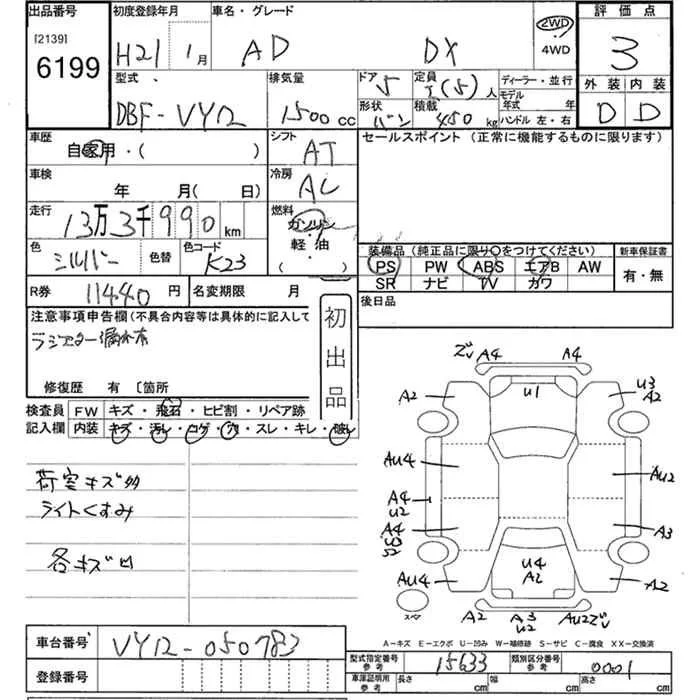 出品番号
[2139]
6199
初度登録年月
H21 1月
車名・グレード
AD DX
2WD
4WD
評価点
3
型式
DBF-VY12
排気量
1500cc
ドア 5
定員 (5)人
ディーラー・並行
形状 バン
積載 450kg
モデル年式 年
ハンドル 左・右
外装 内装
D D
車歴
自家用・( )
シフト
AT
セールスポイント (正常に機能するものに限ります)
車検
年 月( 日)
冷房
AC
走行
13万3千990km
燃料
ガソリン
軽・油
( )
色
シルバー
色替
色コード
K23
装備品 (純正品に限り〇をつけてください)
新車保証書
PS PW ABS エアB AW
SR ナビ TV カワ
有・無
R券 11440円
名変期限 月
後日品
注意事項申告欄 (不具合内容等は具体的に記入して
ラジエター漏れ有
初出品
修復歴 有 〔箇所
検査員
記入欄
FW キズ・飛石・ヒビ割・リペア跡
内装 キズ・汚レ・コゲ・穴・スレ・キレ・破レ
荷室キズ多
ライトくすみ
各キズ凹
ズレ A4 A4
U1
A2
U3
A2
AU4
AU2
A4
U2
A4
A3
U4
A2
AU4
A2
スペア
A2
A3
U2
AU2ズレ
A-キズ E-エクボ U-凹み W-補修跡 S-サビ C-腐食 XX-交換済
車台番号
VY12-050783
登録番号
型式指定番号
参考
15633
類別区分番号
参考
0001
車庫証明用
参考
長さ cm
幅 cm
高さ cm